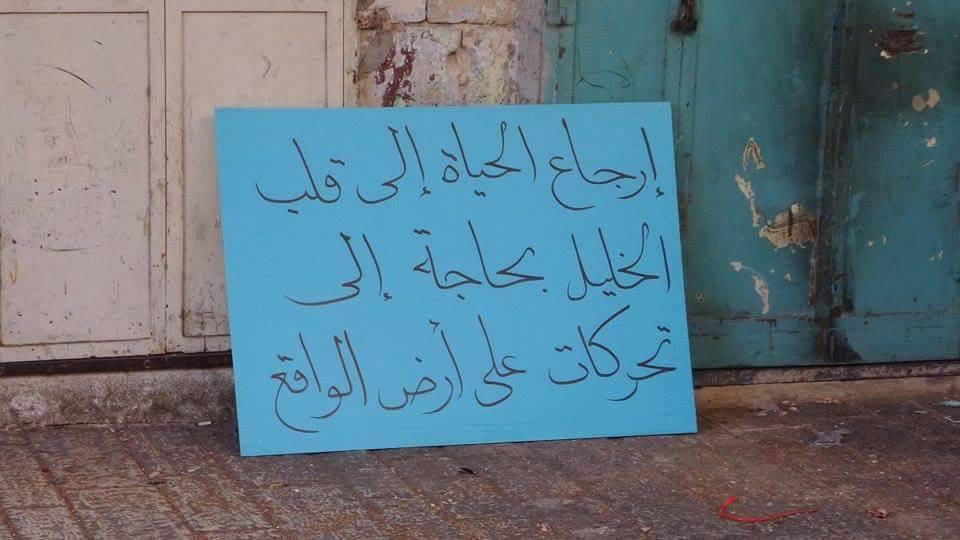 إرجاع الحياة إلى قلب
الخليل بحاجة إلى
تحركات على أرض الواقع